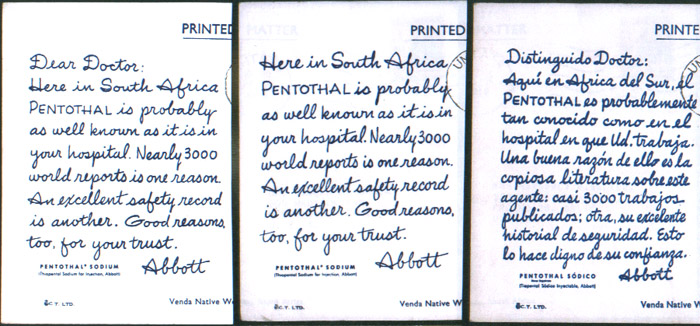 PRINTED
Dear Doctor:
Here in South Africa
PENTOTHAL is probably
as well known as it is in
your hospital. Nearly 3000
world reports is one reason.
An excellent safety record
is another. Good reasons,
too, for your trust.
PENTOTHAL® SODIUM
(Thiopental Sodium for Injection, Abbott)
Abbott
&C.T. LTD.
Venda Native W
PRINTED
Here in South Africa
PENTOTHAL is probably
as well known as it is in
your hospital. Nearly 3000
world reports is one reason.
An excellent safety record
is another. Good reasons,
too, for your trust.
PENTOTHAL® SODIUM
(Thiopental Sodium for Injection, Abbott)
Abbott
&C.T. LTD.
Venda Native W
PRINTE
Distinguido Doctor:
Aquí en Africa del Sur, el
PENTOTHAL es probablemente
tan conocido como en el
hospital en que Ud. trabaja.
Una buena razón de ello es la
copiosa literatura sobre este
agente: casi 3000 trabajos
publicados; otra, su excelente
historial de seguridad. Esto
lo hace digno de su confianza.
PENTOTHAL SÓDICO
(Tiopental Sódico Inyectable, Abbott)
Abbott
&C.T. LTD.
Venda Native W